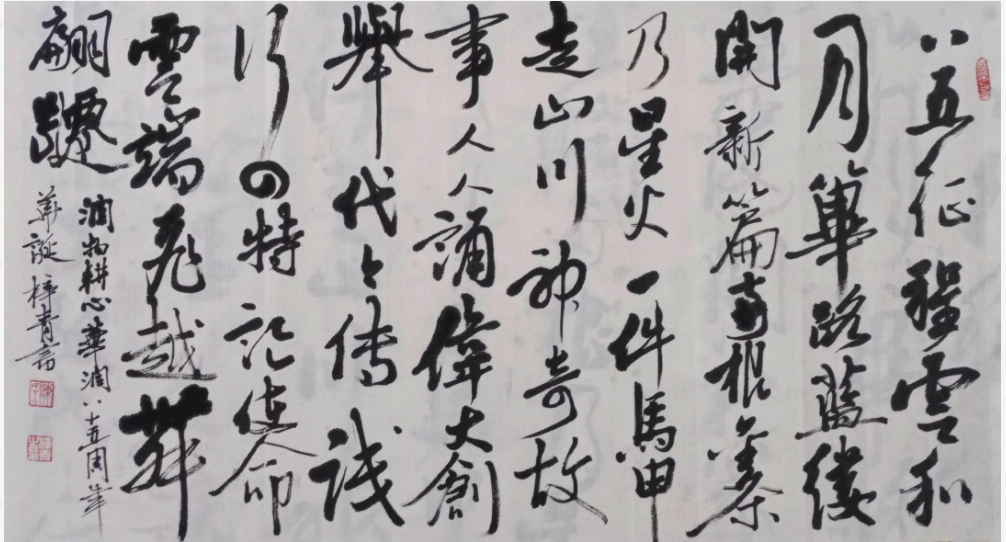 八五征程雲和
月篳路藍縷
開新篇兩根金条
乃星火一件馬甲
走山川神奇故
事人人誦偉大創
舉代代傳誠
行四特記使命
雲端飛越舞
翩躚
潤物耕心華潤八十五周年
華誕梓青書